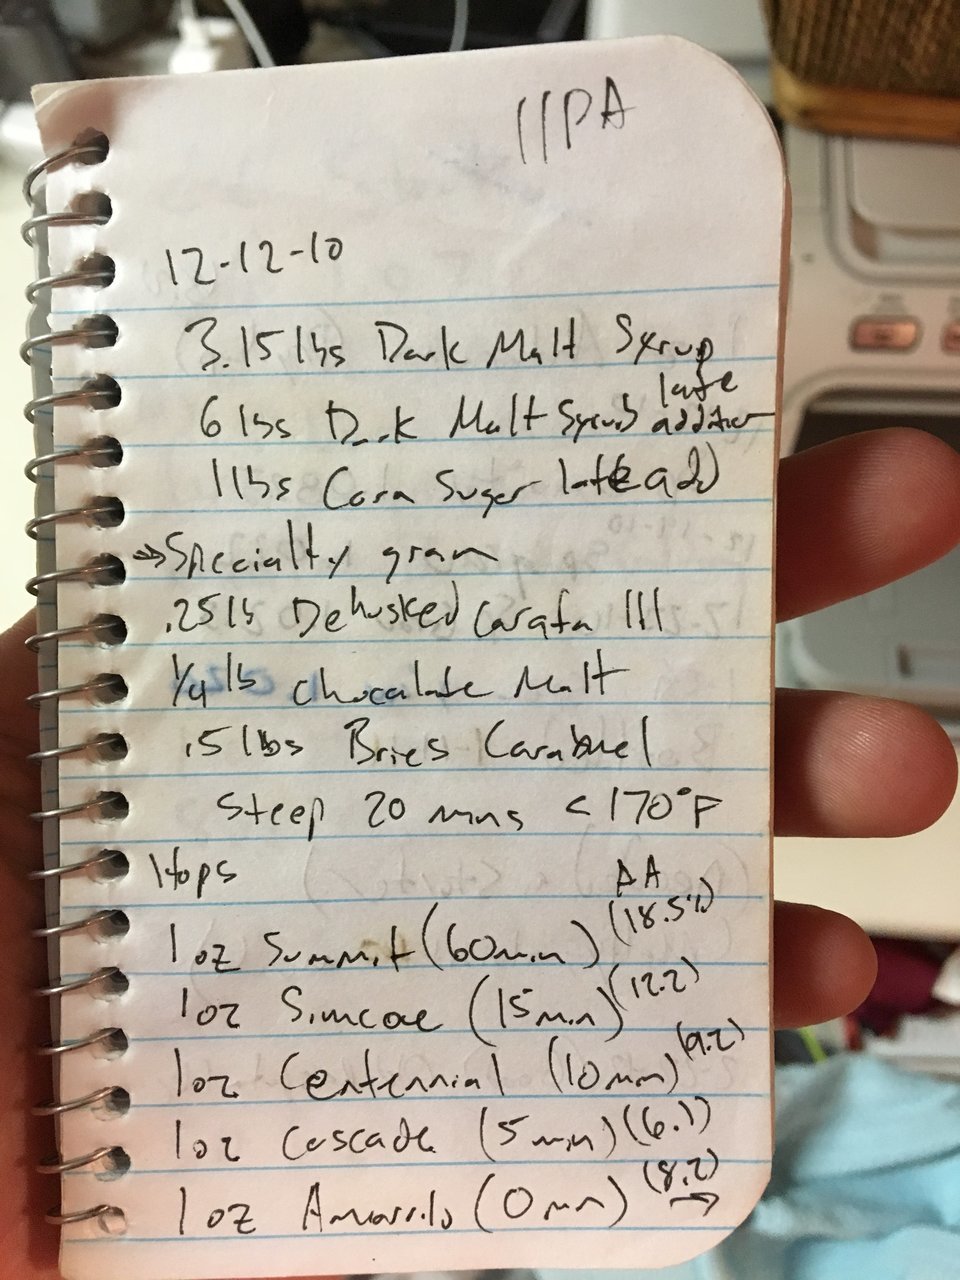 IIPA
12-12-10
3.15 lbs Dark Malt Syrup
6 lbs Dark Malt Syrub late addition
1 lbs Corn Suger late add
→ Specialty grain
.25 lb Dehusked Carafa III
1/4 lb chocalate Malt
.5 lbs Bries Caramel
Steep 20 mins < 170°F
Hops AA
1 oz Summit (60 min) (18.5%)
1 oz Simcoe (15 min) (12.2)
1 oz Centennial (10 min) (9.2)
1 oz Cascade (5 min) (6.1)
1 oz Amarillo (0 min) (8.2) →